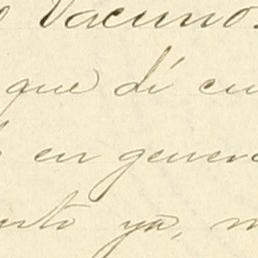 o Vacuno.
que dí cu
en genera
ento ya, m